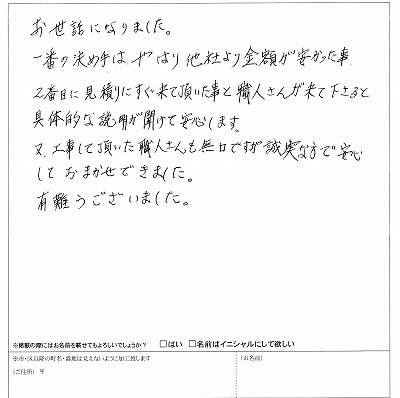 お世話になりました。
一番の決め手は、やはり他社より金額が安かった事
2番目に見積りにすぐ来て頂いた事と職人さんが来て下さると
具体的な説明が聞けて安心します。
又、工事して頂いた職人さんも無口ですが誠実な方で安心
しておまかせできました。
有難うございました。
※掲載の際にはお名前を載せてもよろしいでしょうか？ □はい □名前はイニシャルにして欲しい
※市・区以降の町名・番地は見えないように加工致します
（ご住所） 〒
（お名前）